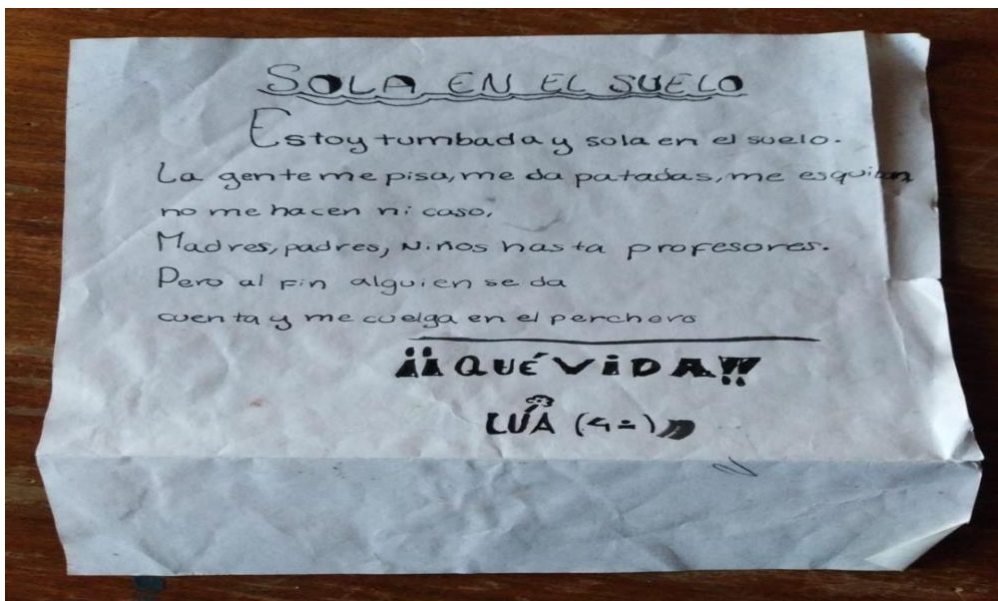 SOLA EN EL SUELO
Estoy tumbada y sola en el suelo.
La gente me pisa, me da patadas, me esquivan,
no me hacen ni caso,
Madres, padres, Niños hasta profesores.
Pero al fin alguien se da
cuenta y me cuelga en el perchero
¡¡QUÉ VIDA!!
LUA (4º)